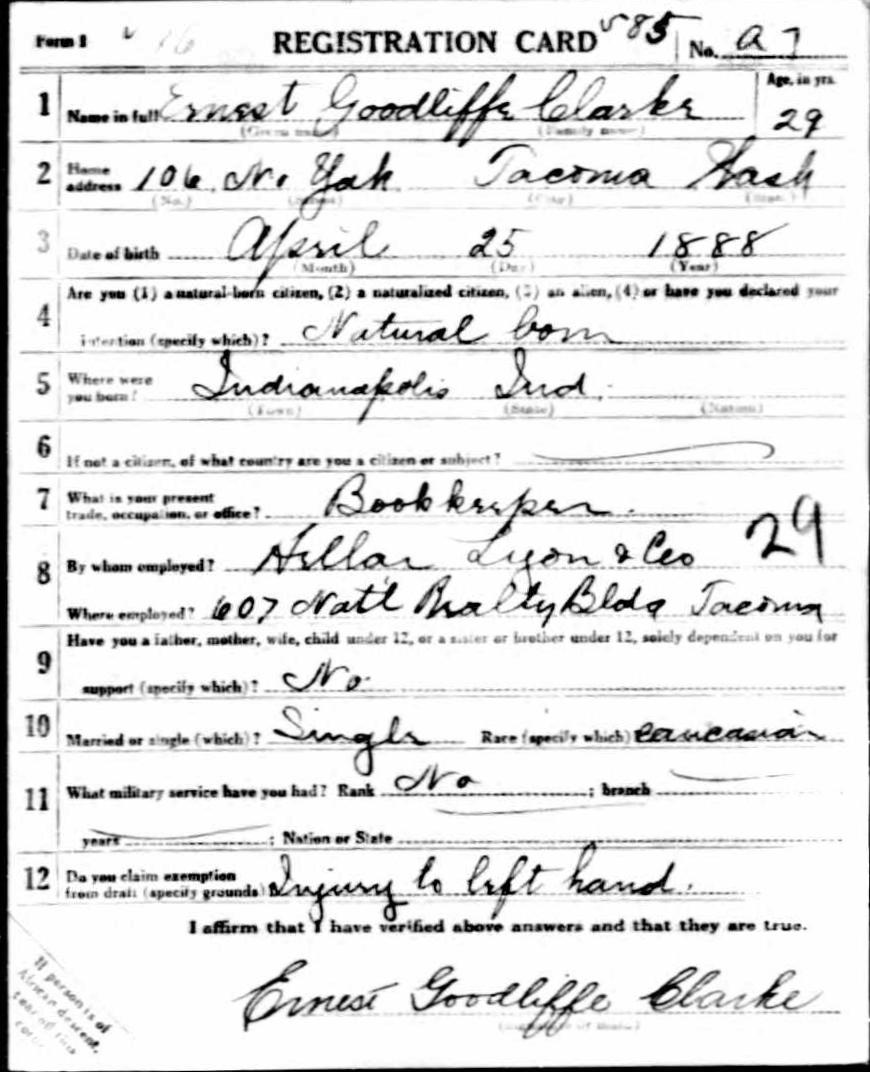 Form 1 REGISTRATION CARD 585 No. 97
1 Name in full Ernest Goodliffe Clarke Age, in yrs.
(Given name) (Family name) 29
2 Home address 106 No Yak Tacoma Wash
(No.) (Street) (City) (State)
3 Date of birth April 25 1888
(Month) (Day) (Year)
4 Are you (1) a natural-born citizen, (2) a naturalized citizen, (3) an alien, (4) or have you declared your
intention (specify which)? Natural born
5 Where were you born? Indianapolis Ind.
(Town) (State) (Nation)
6 If not a citizen, of what country are you a citizen or subject?
7 What is your present trade, occupation, or office? Bookkeeper.
29
8 By whom employed? Lyon & Co
Where employed? 607 Nat'l Realty Bldg Tacoma
9 Have you a father, mother, wife, child under 12, or a sister or brother under 12, solely dependent on you for
support (specify which)? No.
10 Married or single (which)? Single Race (specify which) Caucasian
11 What military service have you had? Rank No ; branch
years ; Nation or State
12 Do you claim exemption from draft (specify grounds) Injury to left hand.
I affirm that I have verified above answers and that they are true.
Ernest Goodliffe Clarke
If person is of
African descent,
tear off this
corner